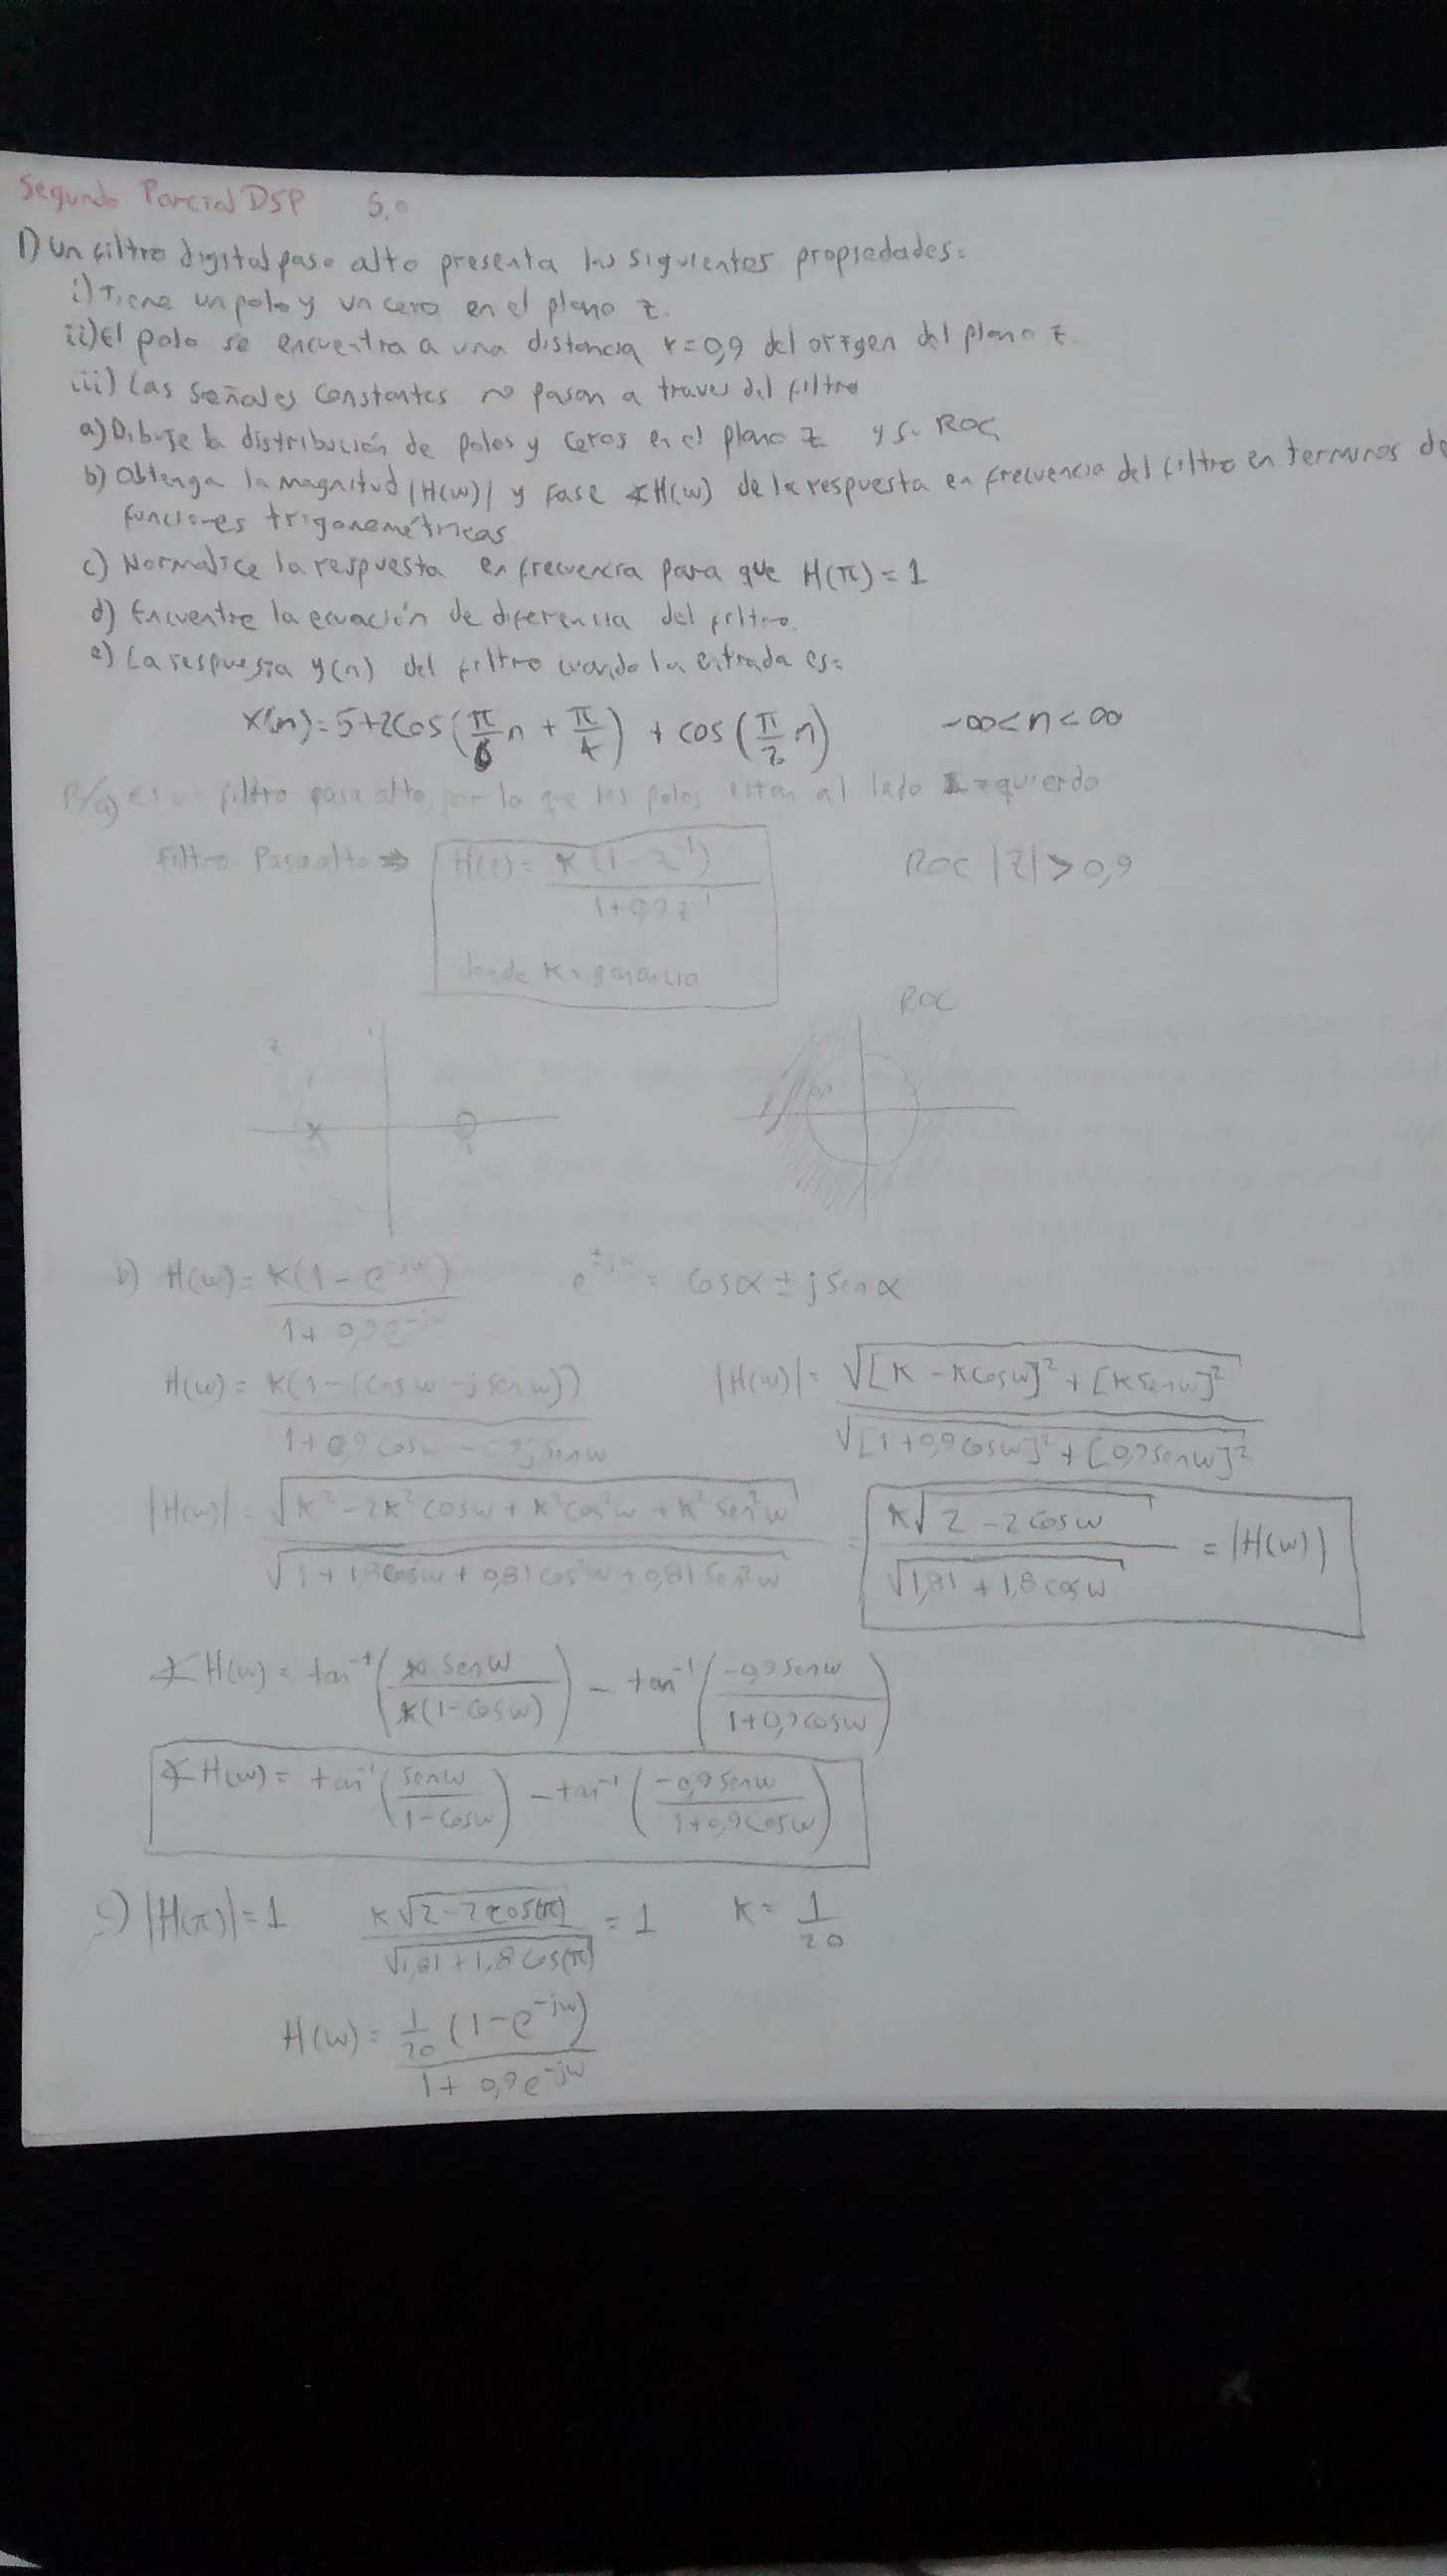 Segundo Parcial DSP 5,0
1) Un filtro digital paso alto presenta las siguientes propiedades:
i) Tiene un polo y un cero en el plano z.
ii) El polo se encuentra a una distancia r=0,9 del origen del plano z.
iii) Las señales constantes no pasan a traves del filtro
a) Dibuje la distribución de polos y ceros en el plano z y su ROC
b) Obtenga la magnitud |H(w)| y fase ∡H(w) de la respuesta en frecuencia del filtro en terminos de
funciones trigonométricas
c) Normalice la respuesta en frecuencia para que H(π) = 1
d) Encuentre la ecuación de diferencia del filtro.
e) La respuesta y(n) del filtro cuando la entrada es:
x(n) = 5+2cos(π/6 n + π/4) + cos(π/2 n) -∞<n<∞
R/a) es un filtro pasa alto, por lo que los polos estan al lado Izquierdo
Filtro Paso alto ⇒ H(z) = K(1-z^-1) / 1+0,9z^-1 ROC |z| > 0,9
donde K = ganancia
ROC
z 1
0,9
1
b) H(w) = K(1-e^-jw) / 1+0,9e^-jw e^±jα = cosα ± j senα
H(w) = K(1-(cosw-jsenw)) / 1+0,9cosw-0,9jsenw |H(w)| = √[K-Kcosw]²+[Ksenw]² / √[1+0,9cosw]²+[0,9senw]²
|H(w)| = √K²-2K²cosw+K²cos²w+K²sen²w / √1+1,8cosw+0,81cos²w+0,81sen²w = K√2-2cosw / √1,81+1,8cosw = |H(w)|
∡H(w) = tan^-1(K senw / K(1-cosw)) - tan^-1(-0,9senw / 1+0,9cosw)
∡H(w) = tan^-1(senw / 1-cosw) - tan^-1(-0,9senw / 1+0,9cosw)
c) |H(π)|=1 K√2-2cos(π) / √1,81+1,8cos(π) = 1 K = 1/20
H(w) = 1/20 (1-e^-jw) / 1+0,9e^-jw